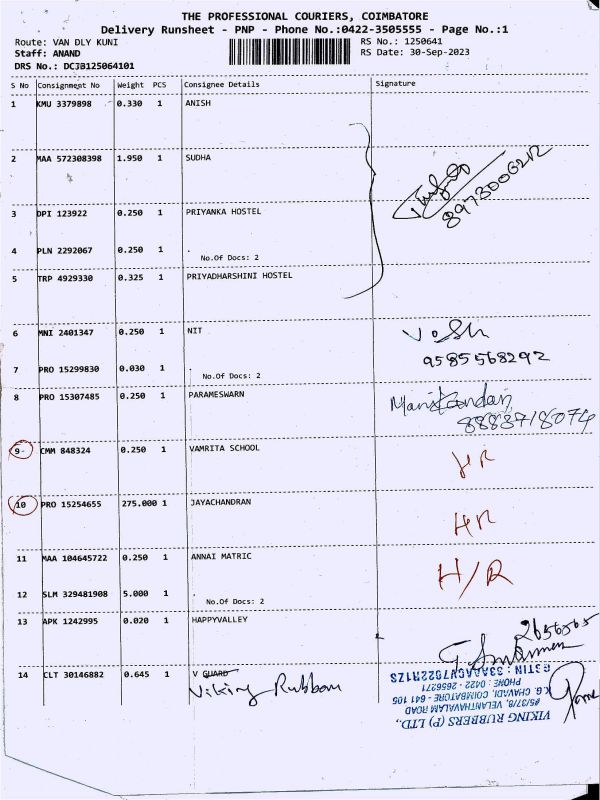 THE PROFESSIONAL COURIERS, COIMBATORE
Delivery Runsheet - PNP - Phone No.:0422-3505555 - Page No.:1
Route: VAN DLY KUNI RS No.: 1250641
Staff: ANAND RS Date: 30-Sep-2023
DRS No.: DCJB125064101
S No Consignment No Weight PCS Consignee Details Signature
1 KMU 3379898 0.330 1 ANISH
2 MAA 572308398 1.950 1 SUDHA
8973006212
3 DPI 123922 0.250 1 PRIYANKA HOSTEL
4 PLN 2292067 0.250 1 .
No.Of Docs: 2
5 TRP 4929330 0.325 1 PRIYADHARSHINI HOSTEL
6 MNI 2401347 0.250 1 NIT
7 PRO 15299830 0.030 1 . 9585568292
No.Of Docs: 2
8 PRO 15307485 0.250 1 PARAMESWARN Manikandan
8883718074
9 CMM 848324 0.250 1 VAMRITA SCHOOL HR
10 PRO 15254655 275.000 1 JAYACHANDRAN HR
11 MAA 104645722 0.250 1 ANNAI MATRIC H/R
12 SLM 329481908 5.000 1 .
No.Of Docs: 2
13 APK 1242995 0.020 1 HAPPYVALLEY 2656565
14 CLT 30146882 0.645 1 V GUARD
Viking Rubbers
VIKING RUBBERS (P) LTD.,
#5/37/8, VELANTHAVALAM ROAD
K.G. CHAVADI, COIMBATORE - 641 105
PHONE : 0422 - 2656271